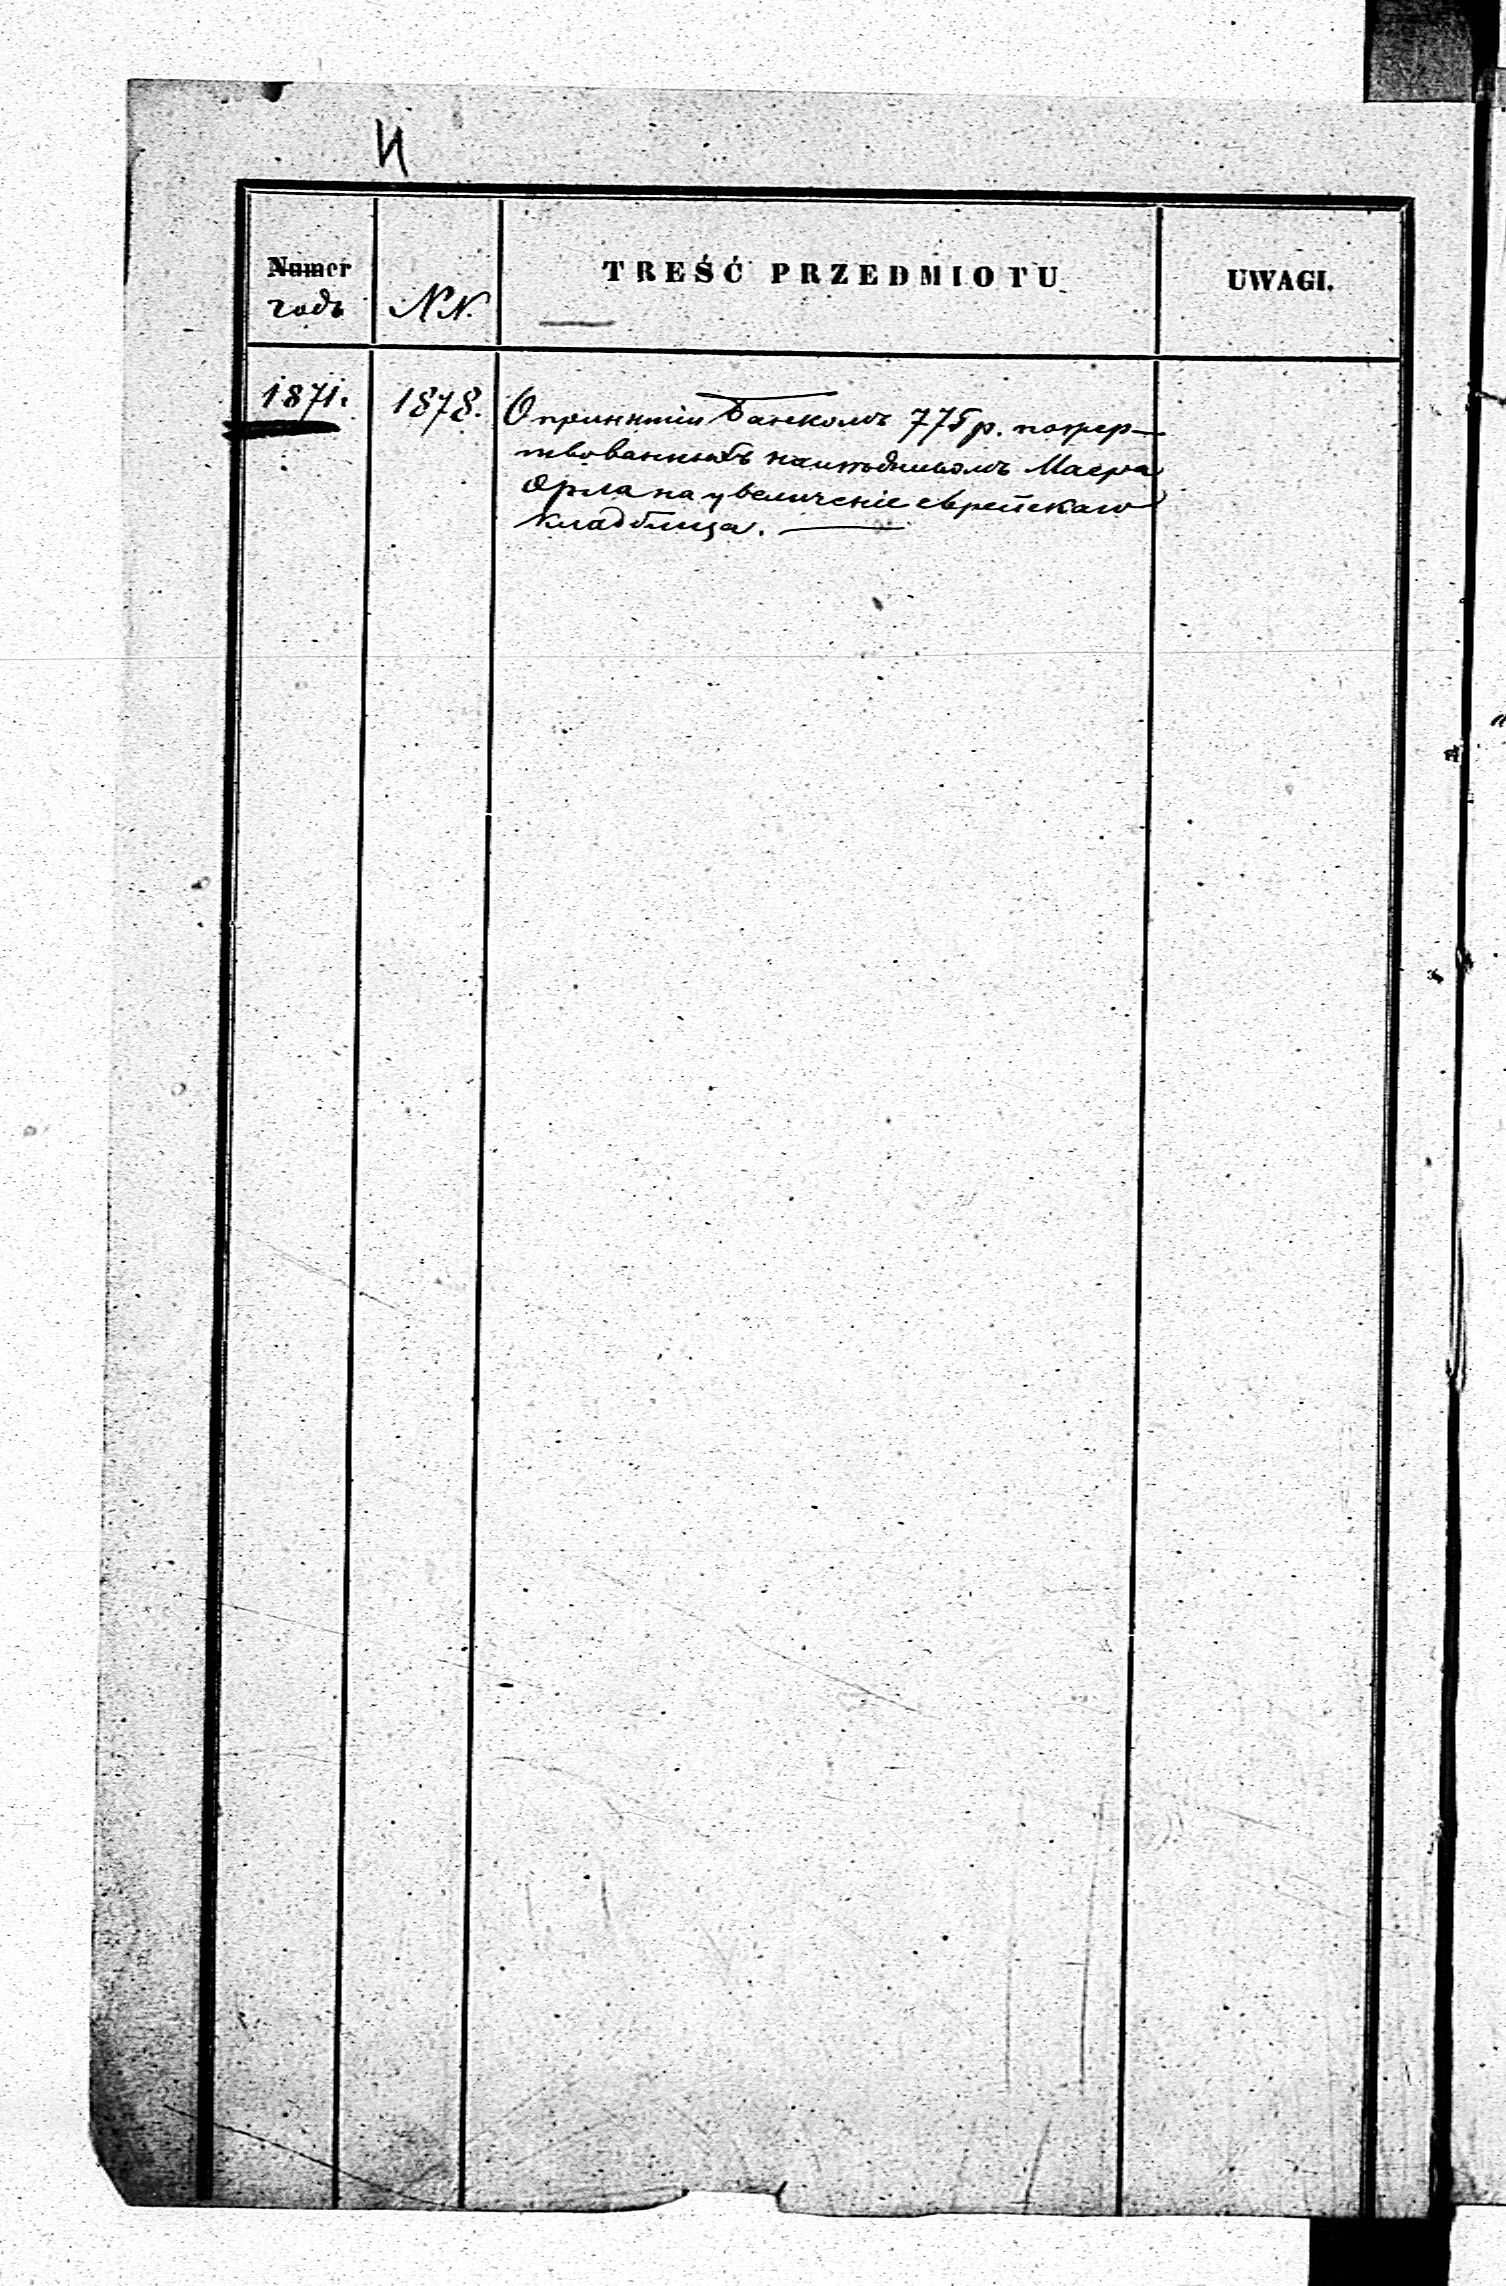 И
Numer
годъ
NN.
TREŚĆ PRZEDMIOTU
UWAGI.
1871.
1878.
О принятіи Банкомъ 775 р. пожер-
твованныхъ наслѣдникомъ Маера
Орла на увеличеніе еврейскаго
кладбища.